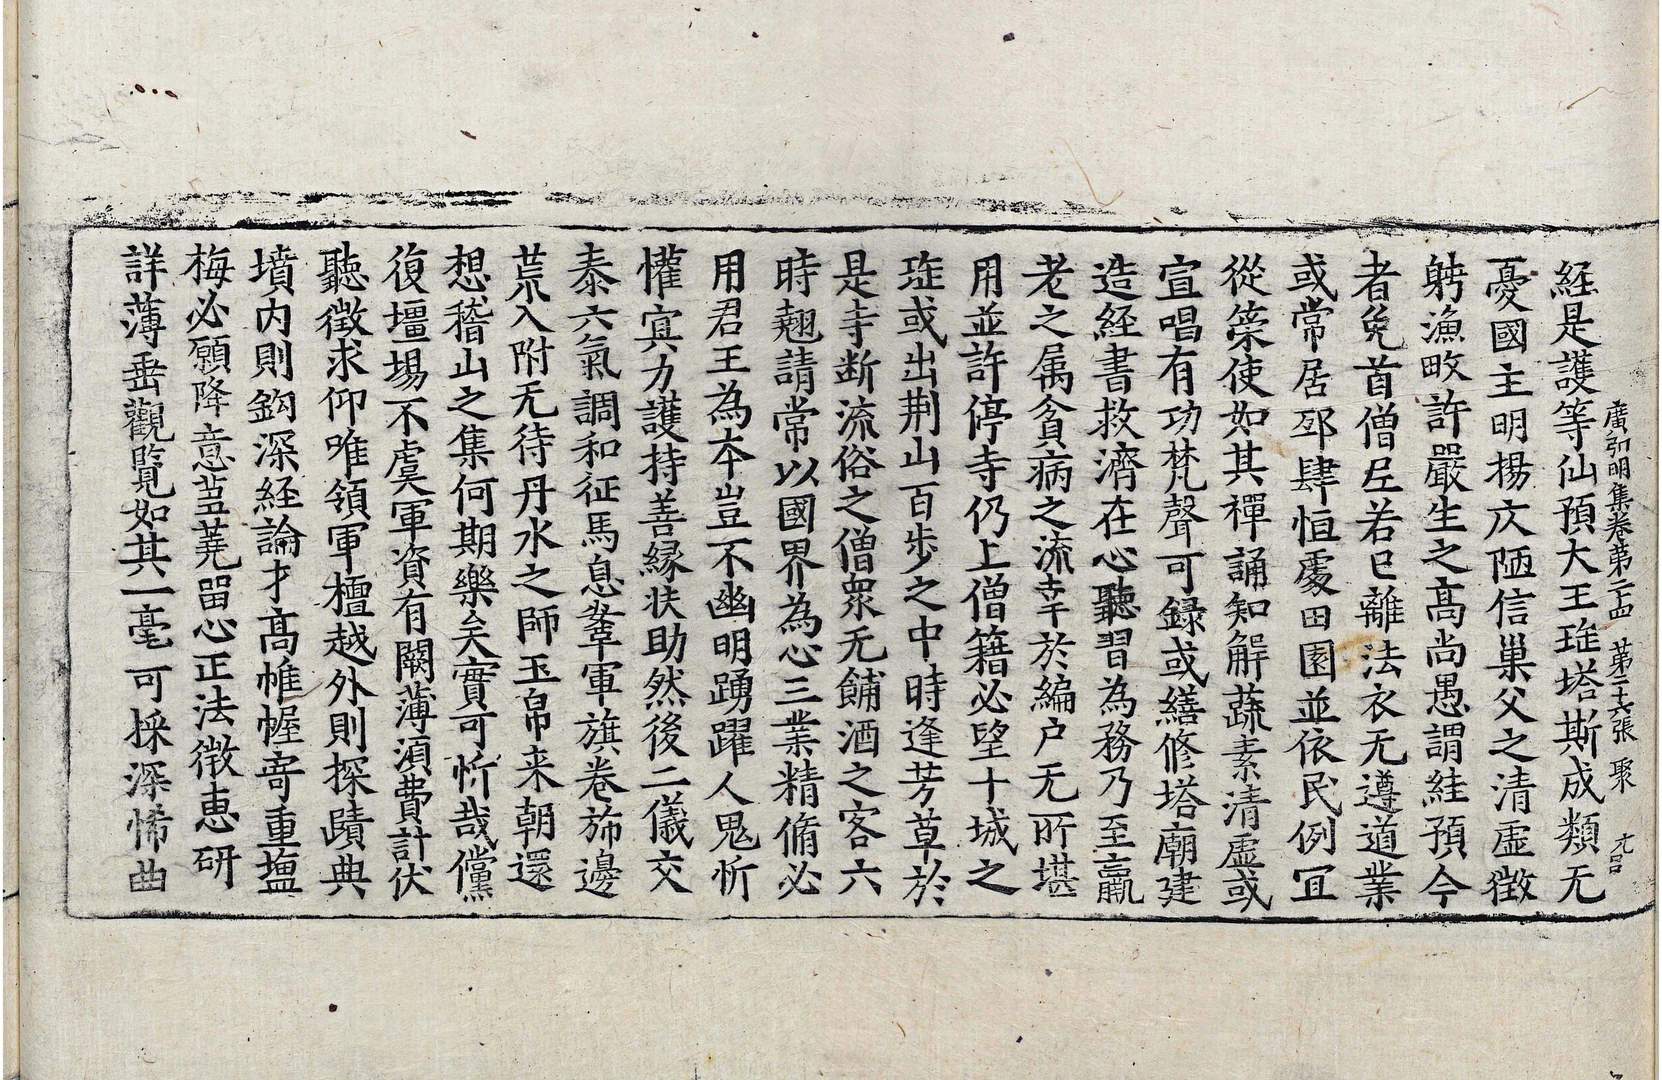 廣弘明集卷第二十四　第二十七張　聚
経是護等仙預大王琟塔斯成類无
憂國主明揚庂陋信巢父之清虛徵
躬漁畋許嚴生之高尚愚謂絓預今
者免首僧尼若已離法衣无遵道業
或常居邳肆恒處田園並依民例冝
從筞使如其禪誦知解蔬素清虛或
宣唱有功梵聲可録或繕修塔廟建
造経書救濟在心聽習為務乃至羸
老之属貧病之流幸於編户无所堪
用並許停寺仍上僧籍必望十城之
琟或出荆山百步之中時逢芳草於
是寺断流俗之僧衆无餔酒之客六
時翹請常以國界為心三業精脩必
用君王為夲豈不幽明踴躍人鬼忻
懽㝠力護持善縁扶助然後二儀交
泰六氣調和征馬息鞌軍旗卷斾邊
荒入附无待丹水之師玉帛来朝還
想稽山之集何期樂矣實可忻哉儻
復壇場不虞軍資有闕薄湏費計伏
聽徵求仰唯領軍檀越外則探賾典
墳内則鈎深経論才高帷幄寄重塩
梅必願降意芻蕘畱心正法徴恵研
詳薄垂觀覧如其一毫可採深悕曲